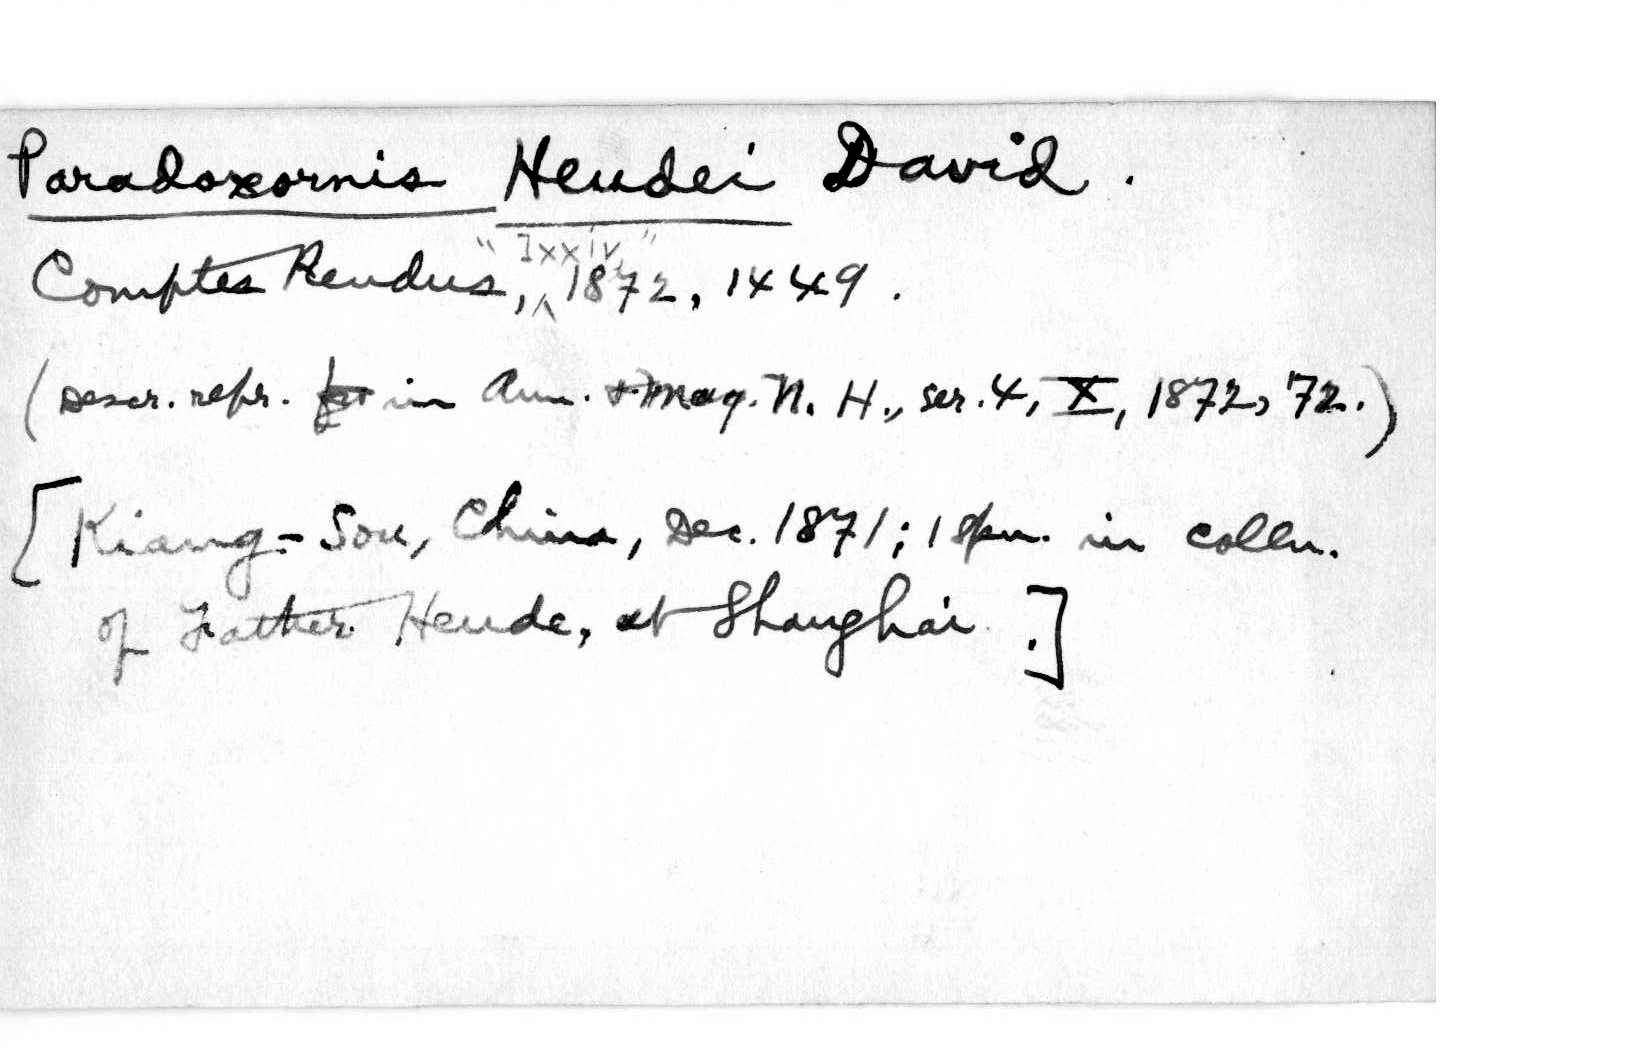 Paradoxornis Heudei David.
Comptes Rendus, "lxxiv," 1872, 1449.
(Descr. repr. in Ann. + Mag. N. H., ser. 4, X, 1872, 72.)
[Kiang-Sou, China, Dec. 1871; 1 spn. in colln.
of Father Heude, at Shanghai.]